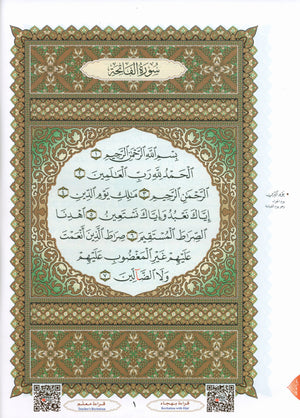 سُورَةُ الْفَاتِحَةِ
بِسْمِ اللَّهِ الرَّحْمَٰنِ الرَّحِيمِ ١
الْحَمْدُ لِلَّهِ رَبِّ الْعَالَمِينَ ٢
الرَّحْمَٰنِ الرَّحِيمِ ٣ مَالِكِ يَوْمِ الدِّينِ ٤
إِيَّاكَ نَعْبُدُ وَإِيَّاكَ نَسْتَعِينُ ٥ اهْدِنَا
الصِّرَاطَ الْمُسْتَقِيمَ ٦ صِرَاطَ الَّذِينَ أَنْعَمْتَ
عَلَيْهِمْ غَيْرِ الْمَغْضُوبِ عَلَيْهِمْ
وَلَا الضَّالِّينَ ٧
يَوْمِ الدِّينِ
يوم الجزاء
قراءة معلم
Teacher's Recitation
١
قراءة بهجاء
Recitation with Hijaa